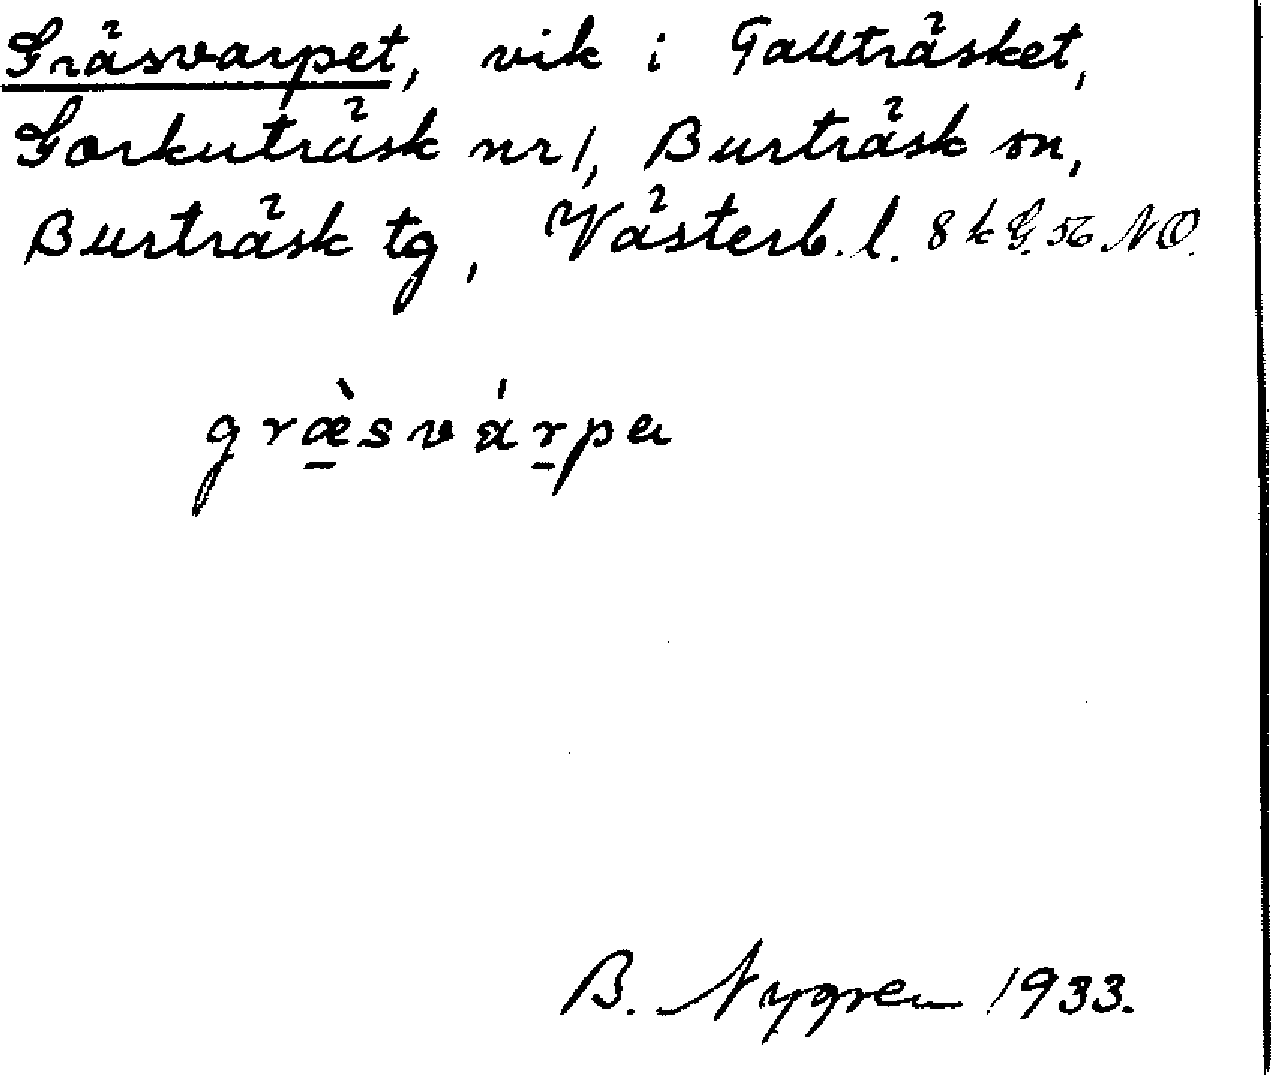 Gräsvarpet, vik i Tallträsket,
Gorkuträsk nr 1, Burträsk sn,
Burträsk tg, Västerb. l. 8 k G. 56 NO.
græ̱̀svárpa
B. Nygren 1933.